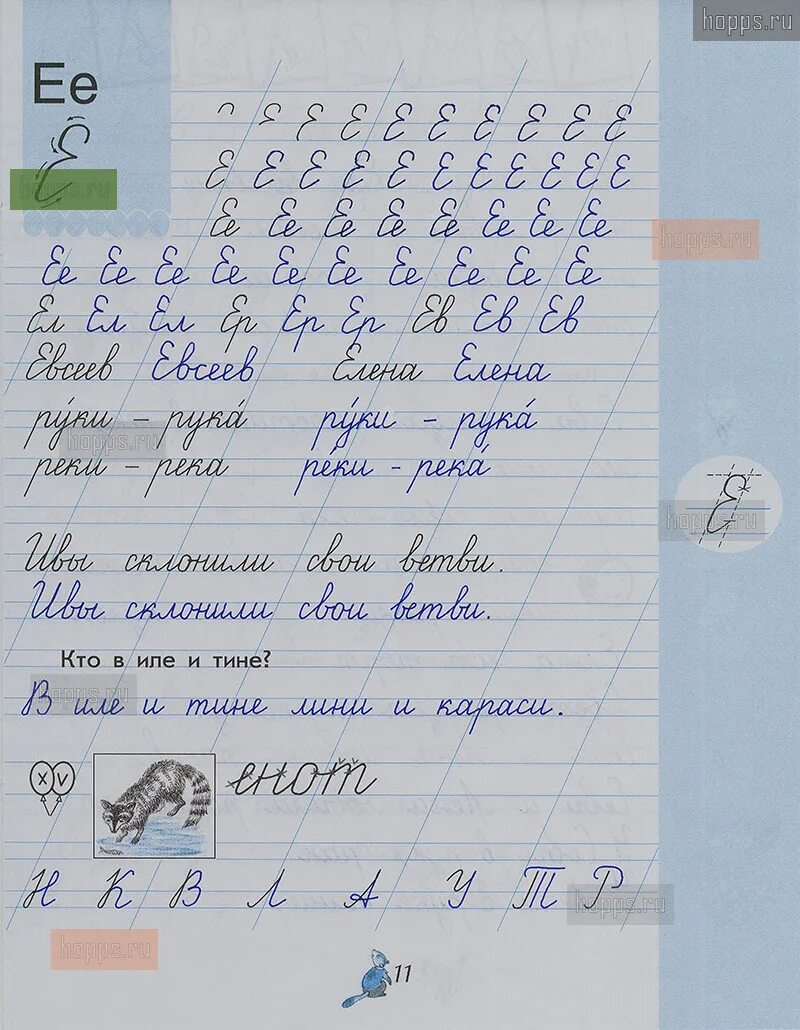 hopps.ru
Ее
Е Е Е Е Е Е Е
Е
Е Е Е Е Е Е Е Е Е Е Е
hopps.ru
Ее Ее Ее Ее Ее Ее Ее Ее
hopps.ru
Ее Ее Ее Ее Ее Ее Ее Ее Ее Ее
Ел Ел Ел Ер Ер Ер Ев Ев Ев
Евсеев Евсеев Елена Елена
ру́ки – рука́ ру́ки – рука́
hopps.ru
реки – река ре́ки - река́
Е
hopps.ru
Ивы склонили свои ветви.
Ивы склонили свои ветви.
Кто в иле и тине?
hopps.ru
В иле и тине лини и караси.
х v
енот
Н К В Л А У Т Р
hopps.ru
hopps.ru
11